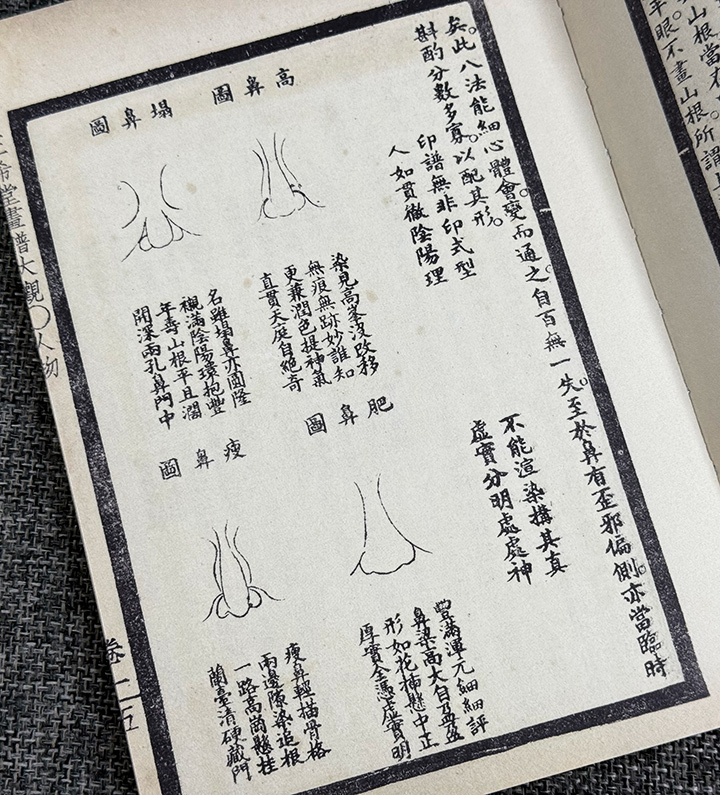 山根當有
半眼不畫山根所謂
矣。此八法能細心體會。變而通之。自百無一失。至於鼻有歪邪偏側。亦當臨時
斟酌分數多寡。以配其形。
印譜無非印式型
不能渲染搆其真
人如貫徹陰陽理
虛實分明處處神
高鼻圖
染見高峯沒改移
無痕無跡妙誰知
更兼潤色提神氣
直貫天庭自絕奇
塌鼻圖
名雖塌鼻亦圓隆
襯滿陰陽環抱豐
年壽山根平且濶
開深兩孔鼻門中
肥鼻圖
豐滿渾元細細評
鼻梁高大自盈盈
形如花插懸中正
厚實全憑虛實明
瘦鼻圖
瘦鼻輕描骨格
兩邊隙染追根
一路高懸挂
蘭臺清硬藏門
希堂畫譜大觀〇人物
卷